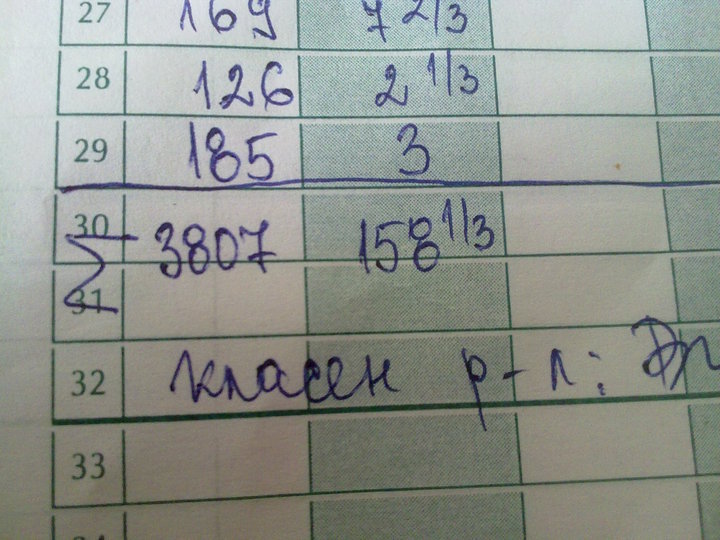 27 169 7 2/3
28 126 2 1/3
29 185 3
30 3807 158 1/3
Σ
31
32 класен р-л:
33